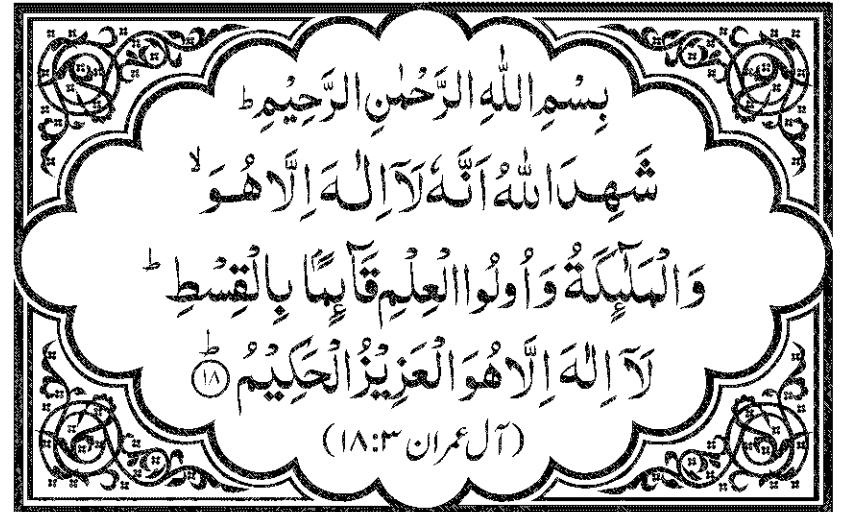 بِسْمِ اللّٰهِ الرَّحْمٰنِ الرَّحِيْمِ ؕ
شَهِدَ اللّٰهُ اَنَّهٗ لَاۤ اِلٰهَ اِلَّا هُوَ ۙ
وَالْمَلٰٓىِٕكَةُ وَاُولُوا الْعِلْمِ قَآىِٕمًاۢ بِالْقِسْطِ ؕ
لَاۤ اِلٰهَ اِلَّا هُوَ الْعَزِيْزُ الْحَكِيْمُ ؕ ﴿۱۸﴾
(آل عمران ۱۸:۳)